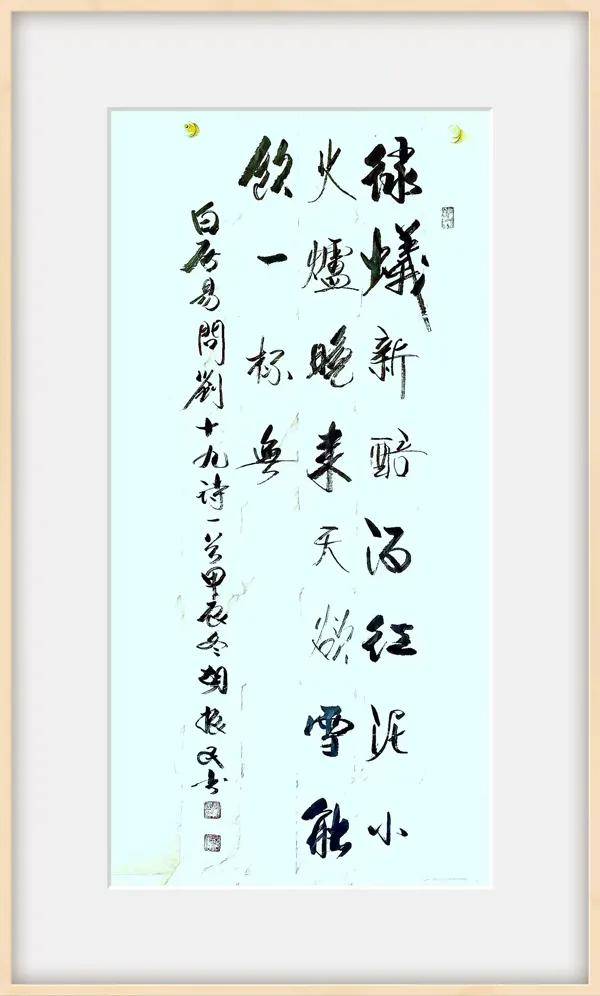 綠蟻新醅酒紅泥小
火爐晚来天欲雪能
飲一杯無
白居易問劉十九詩一首甲辰冬胡振文书